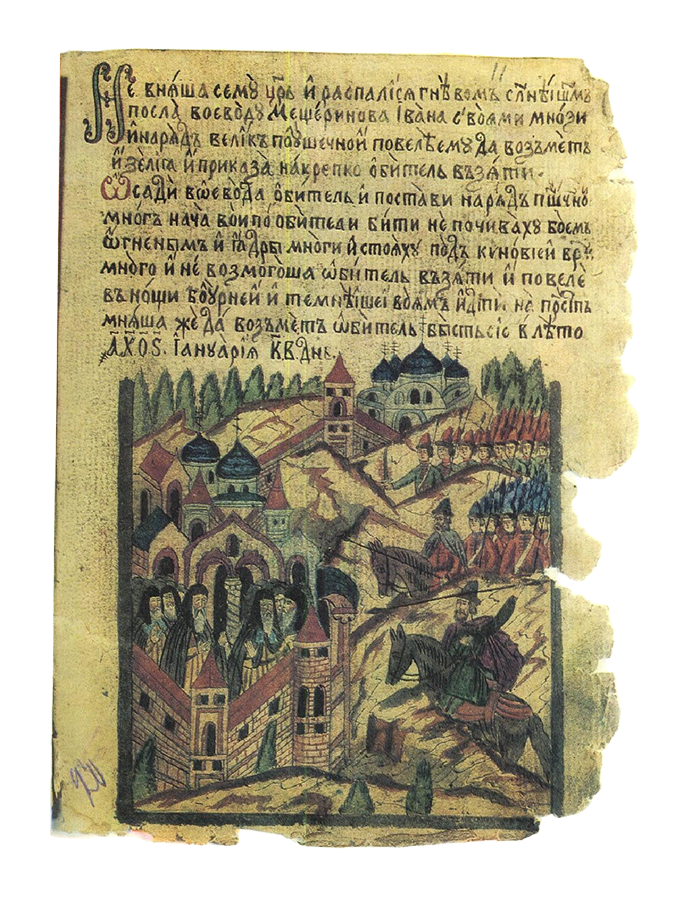 Не внѧша сему црь и҆ распалісѧ гнѣвомъ с̾лнѣишмъ
посла воеводу Мещеринова Івана с̾воѧми мнози
и҆ нарѧдъ велікъ поушечнои҆ повелѣ ему да возъметъ
и҆ зеліга и҆ приказа накрепко ѻ҆битель възѧти.
Ѿсади вѡевода ѻ҆битель и҆ постави нарѧдъ пшчно
многъ нача вои по обители бити не почиваху боемъ
ѿгненымъ и҆ ꙗдры многи и҆ стоѧху подъ куновіей вр
много и҆ не возмогоша ѡ҆битель възѧти и҆ повелѣ
въ нощи боурней и҆ темнѣишеи воѧмъ и҆діти на прстпъ
мнѧша же да возъметъ ѡ҆битель бысть сіе в лѣто
҂АХОЅ. Іануарїѧ КВ. Днь.
920